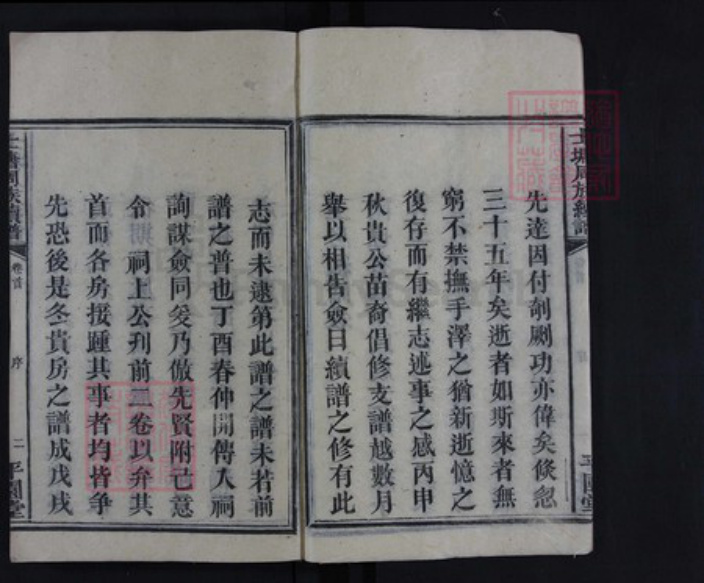 先達因付剞劂功亦偉矣倐忽
三十五年矣逝者如斯來者無
窮不禁撫手澤之猶新逝憶之
復存而有繼志述事之感丙申
秋貴公苗裔倡修支譜越數月
舉以相告僉曰續譜之修有此
志而未逮第此譜之譜未若前
譜之普也丁酉春仲開傳人祠
詢謀僉同爰乃倣先賢附己意
令期祠上公刋前二卷以弁其
首而各房接踵其事者均皆爭
先恐後是冬貴房之譜成戊戌
士塘周族續譜
卷首
序
二
平園堂